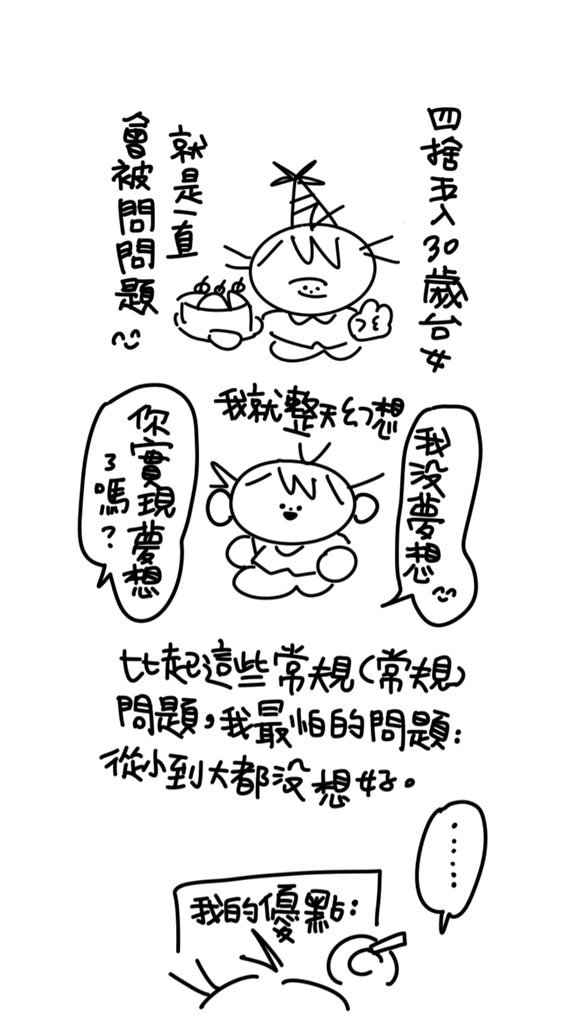 四捨五入30歲台女
就是一直
會被問問題
我就整天幻想
你實現夢想
了嗎？
我沒夢想
比起這些常規(常規)
問題，我最怕的問題：
從小到大都沒想好。
......
我的優點：